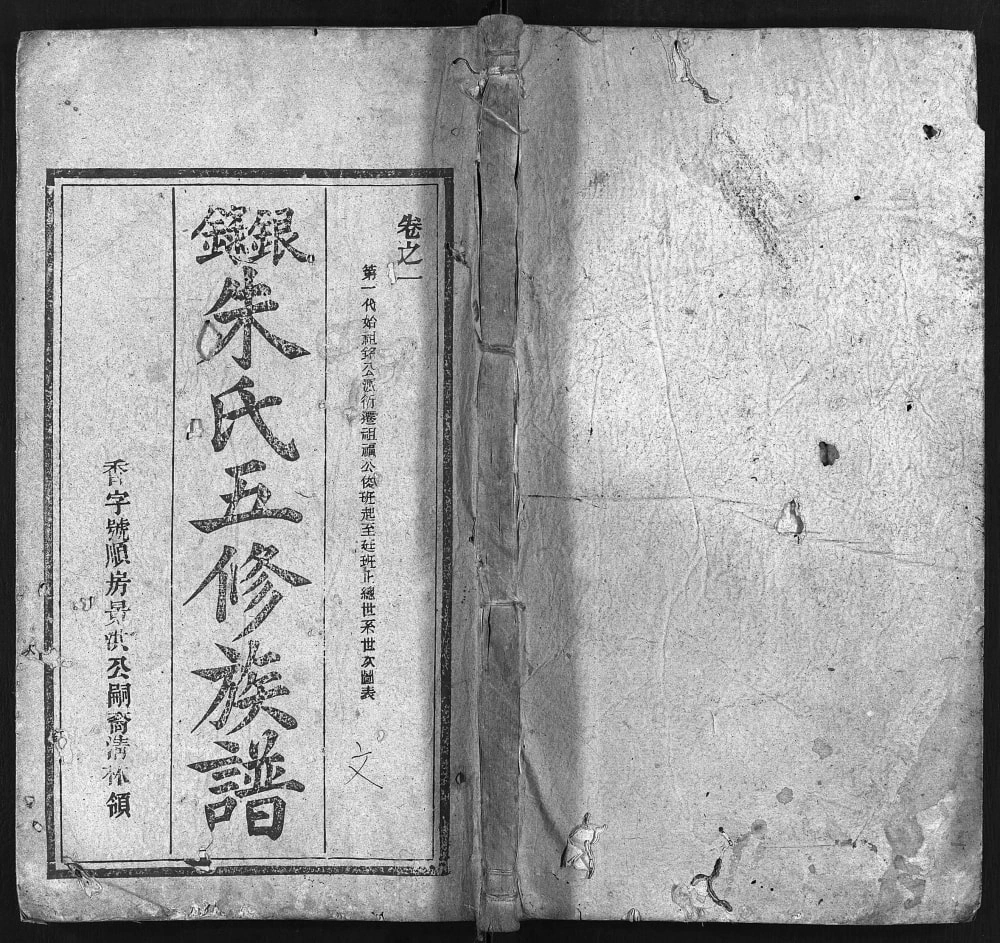 卷之一
第一代始祖銘公派衍遷祖禎公俊班起至廷班止總世系世次圖表
文
銀鑪朱氏五修族譜
香字號順房景洪公嗣裔清林領